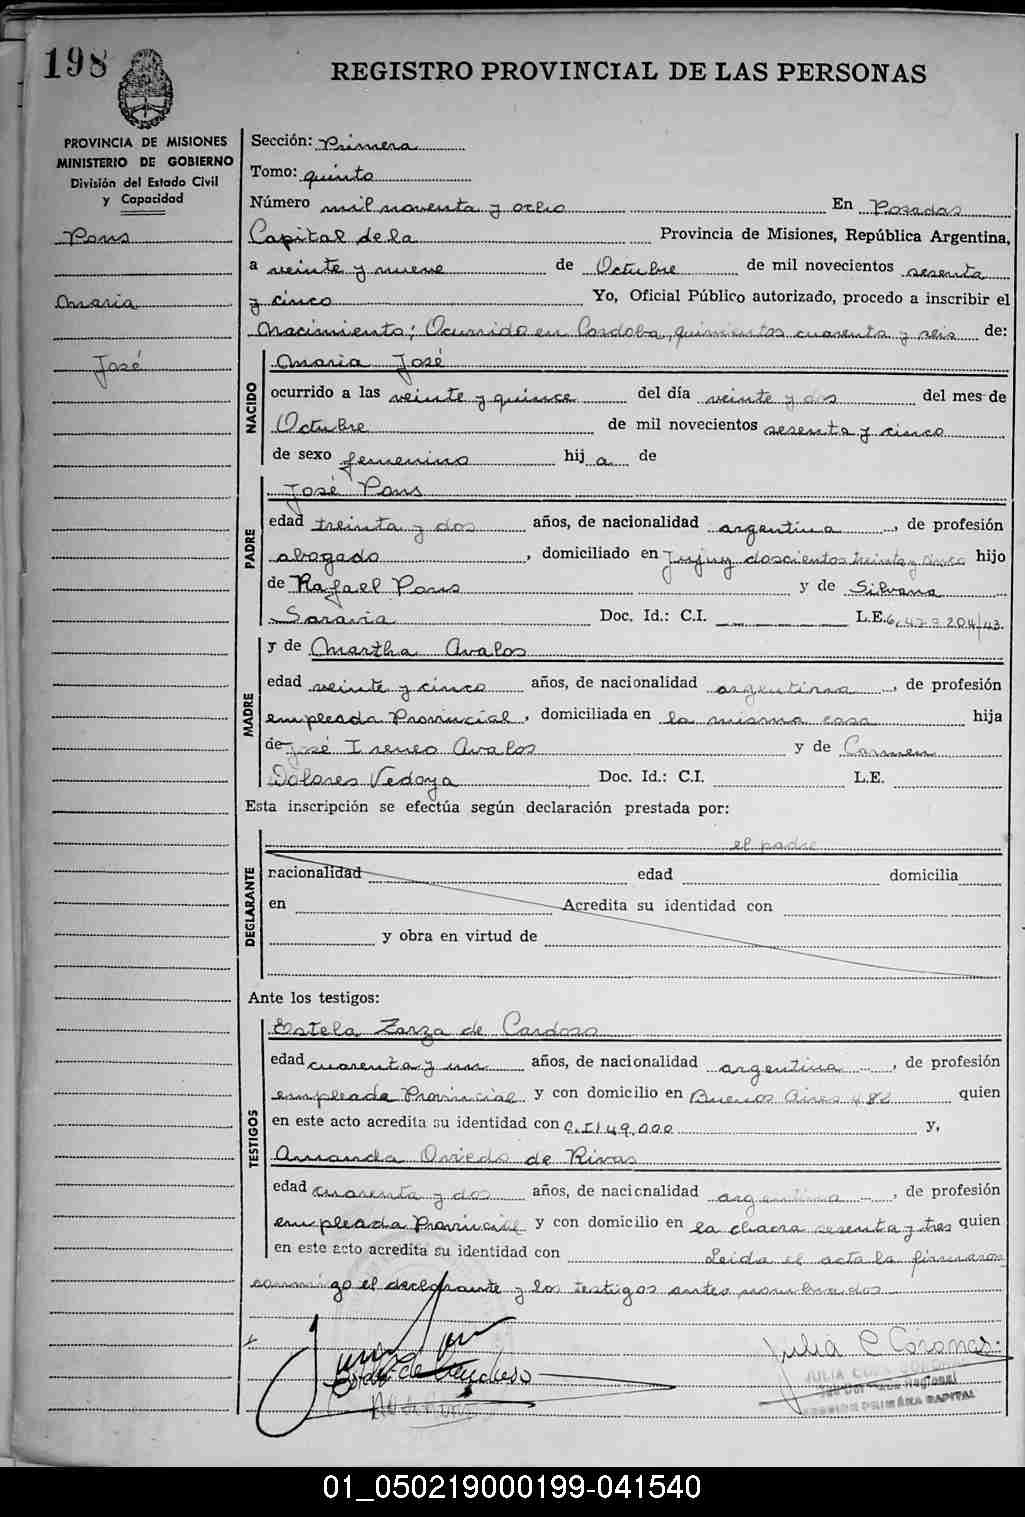 198
REGISTRO PROVINCIAL DE LAS PERSONAS
PROVINCIA DE MISIONES
MINISTERIO DE GOBIERNO
División del Estado Civil
y Capacidad
Pons
Maria
José
Sección: Primera
Tomo: quinto
Número mil noventa y ocho En Posadas
Capital de la Provincia de Misiones, República Argentina,
a veinte y nueve de Octubre de mil novecientos sesenta
y cinco Yo, Oficial Público autorizado, procedo a inscribir el
Nacimiento; Ocurrido en Cordoba, quinientos cuarenta y seis de:
NACIDO
Maria José
ocurrido a las veinte y quince del día veinte y dos del mes de
Octubre de mil novecientos sesenta y cinco
de sexo femenino hija de
PADRE
José Pons
edad treinta y dos años, de nacionalidad argentina, de profesión
abogado, domiciliado en Jujuy doscientos treinta y cinco hijo
de Rafael Pons y de Silvana
Saravia Doc. Id.: C.I. L.E.
MADRE
y de Martha Avalos
edad veinte y cinco años, de nacionalidad argentina, de profesión
empleada Provincial, domiciliada en la misma casa hija
de José Ireneo Avalos y de Carmen
Dolores Vedoya Doc. Id.: C.I. L.E.
Esta inscripción se efectúa según declaración prestada por:
DECLARANTE
el padre
nacionalidad edad domicilia
en Acredita su identidad con
y obra en virtud de
Ante los testigos:
TESTIGOS
Estela Zarza de Cardozo
edad cuarenta y un años, de nacionalidad argentina, de profesión
empleada Provincial y con domicilio en Buenos Aires 482 quien
en este acto acredita su identidad con C.I 149.000 y,
Amanda Oviedo de Rivas
edad cuarenta y dos años, de nacionalidad argentina, de profesión
empleada Provincial y con domicilio en la chacra sesenta y tres quien
en este acto acredita su identidad con Leida el acta la firmaron
conmigo el declarante y los testigos antes nombrados
Julia C Coronas
01_050219000199-041540